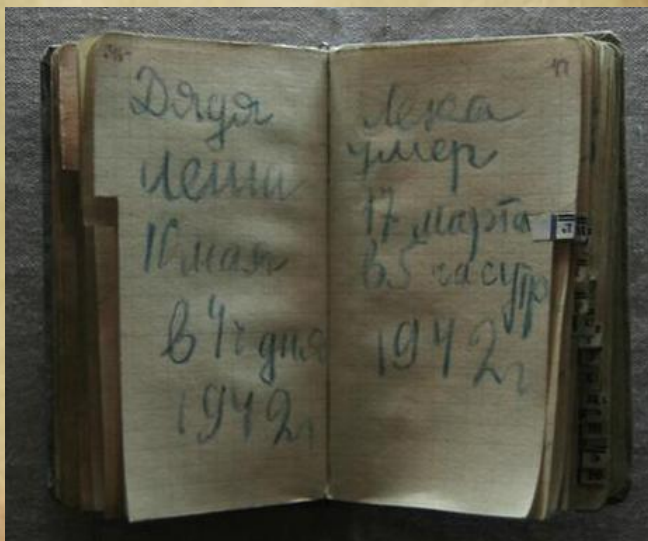 Дядя
Леша
10 мая
в 4ч дня
1942г
41
Лека
умер
17 марта
в 5 час утр
1942г